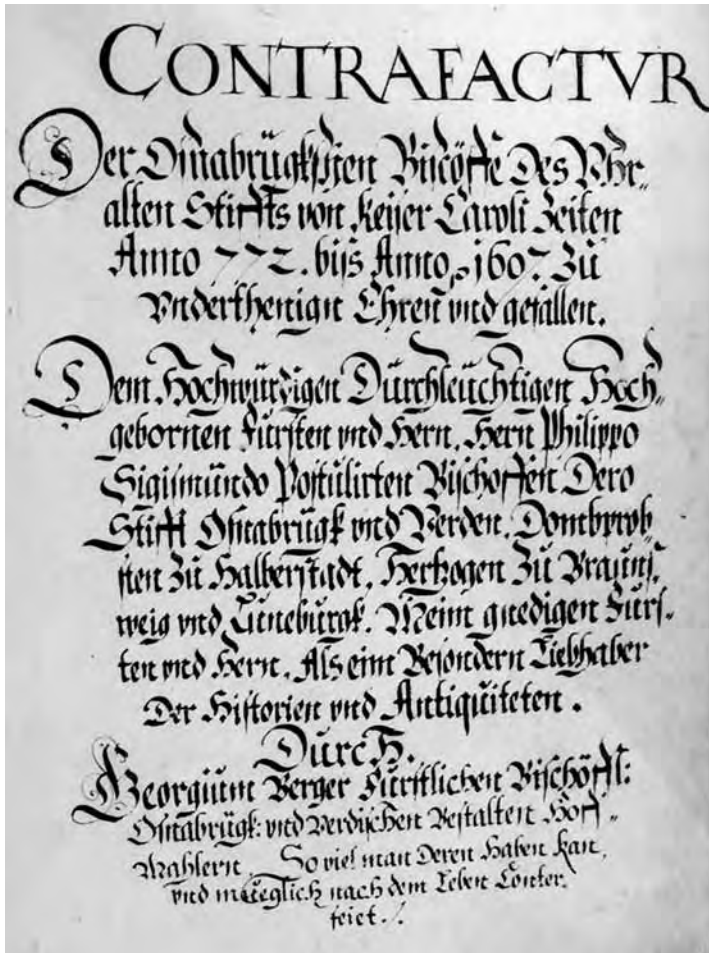 CONTRAFACTVR
Der Oßnabrügkischen Bischöffe Des Vhr-
alten Stiffts von Keiser Caroli Zeiten
Anno 772. biß Anno, 1607. Zů
Vnderthenign Ehren vnd gefallen.
Dem Hochwürdigen Durchleuchtigen Hoch-
gebornen Fursten vnd Hern, Hern Philippo
Sigismundo Postulirten Bischoffen Dero
Stifft Oßnabrügk vnd Verden, Dombprob-
sten Zů Halberstadt, Hertzogen Zů Brauns,
weig vnd Luneburgk. Meim gnedigen Furs-
ten vnd Hern, Als eim Besondern Liebhaber
Der Historien vnd Antiquiteten.
Durch.
Georgium Berger Fürstlichen Bischöffl:
Oßnabrügk: vnd Verdischen Bestalten Hoff-
Mahlern, So viel man Deren Haben kan,
vnd müeglich nach dem Leben Conter,
feiet./.